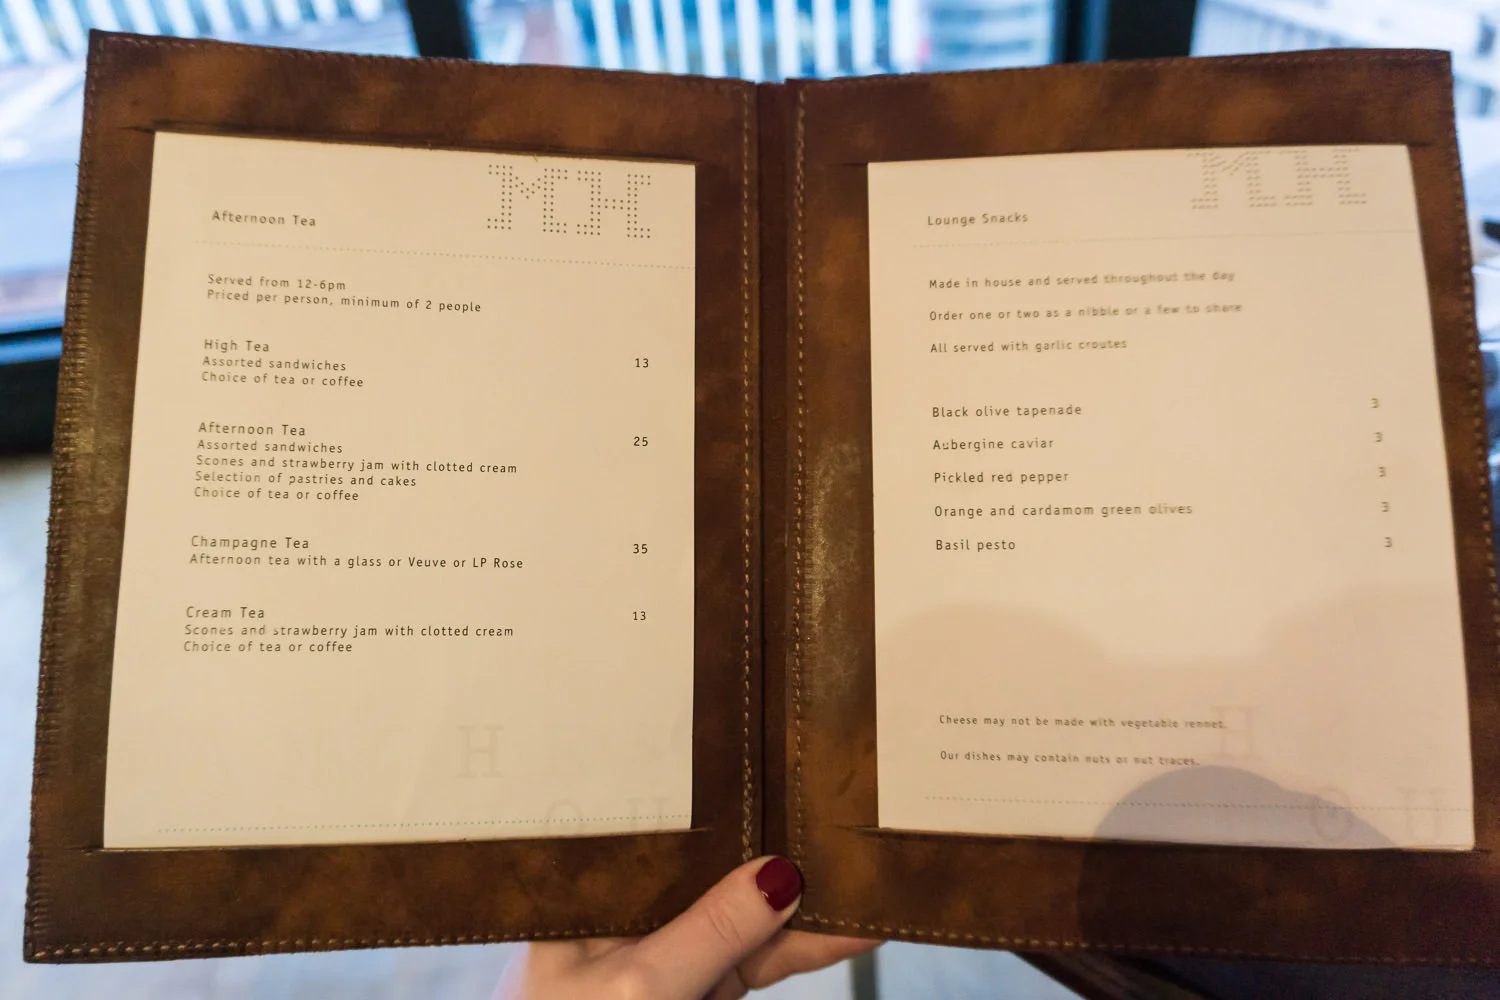 MH
Afternoon Tea
Served from 12-6pm
Priced per person, minimum of 2 people
High Tea
Assorted sandwiches 13
Choice of tea or coffee
Afternoon Tea
Assorted sandwiches 25
Scones and strawberry jam with clotted cream
Selection of pastries and cakes
Choice of tea or coffee
Champagne Tea 35
Afternoon tea with a glass or Veuve or LP Rose
Cream Tea 13
Scones and strawberry jam with clotted cream
Choice of tea or coffee
MH
Lounge Snacks
Made in house and served throughout the day
Order one or two as a nibble or a few to share
All served with garlic croutes
Black olive tapenade 3
Aubergine caviar 3
Pickled red pepper 3
Orange and cardamom green olives 3
Basil pesto 3
Cheese may not be made with vegetable rennet.
Our dishes may contain nuts or nut traces.